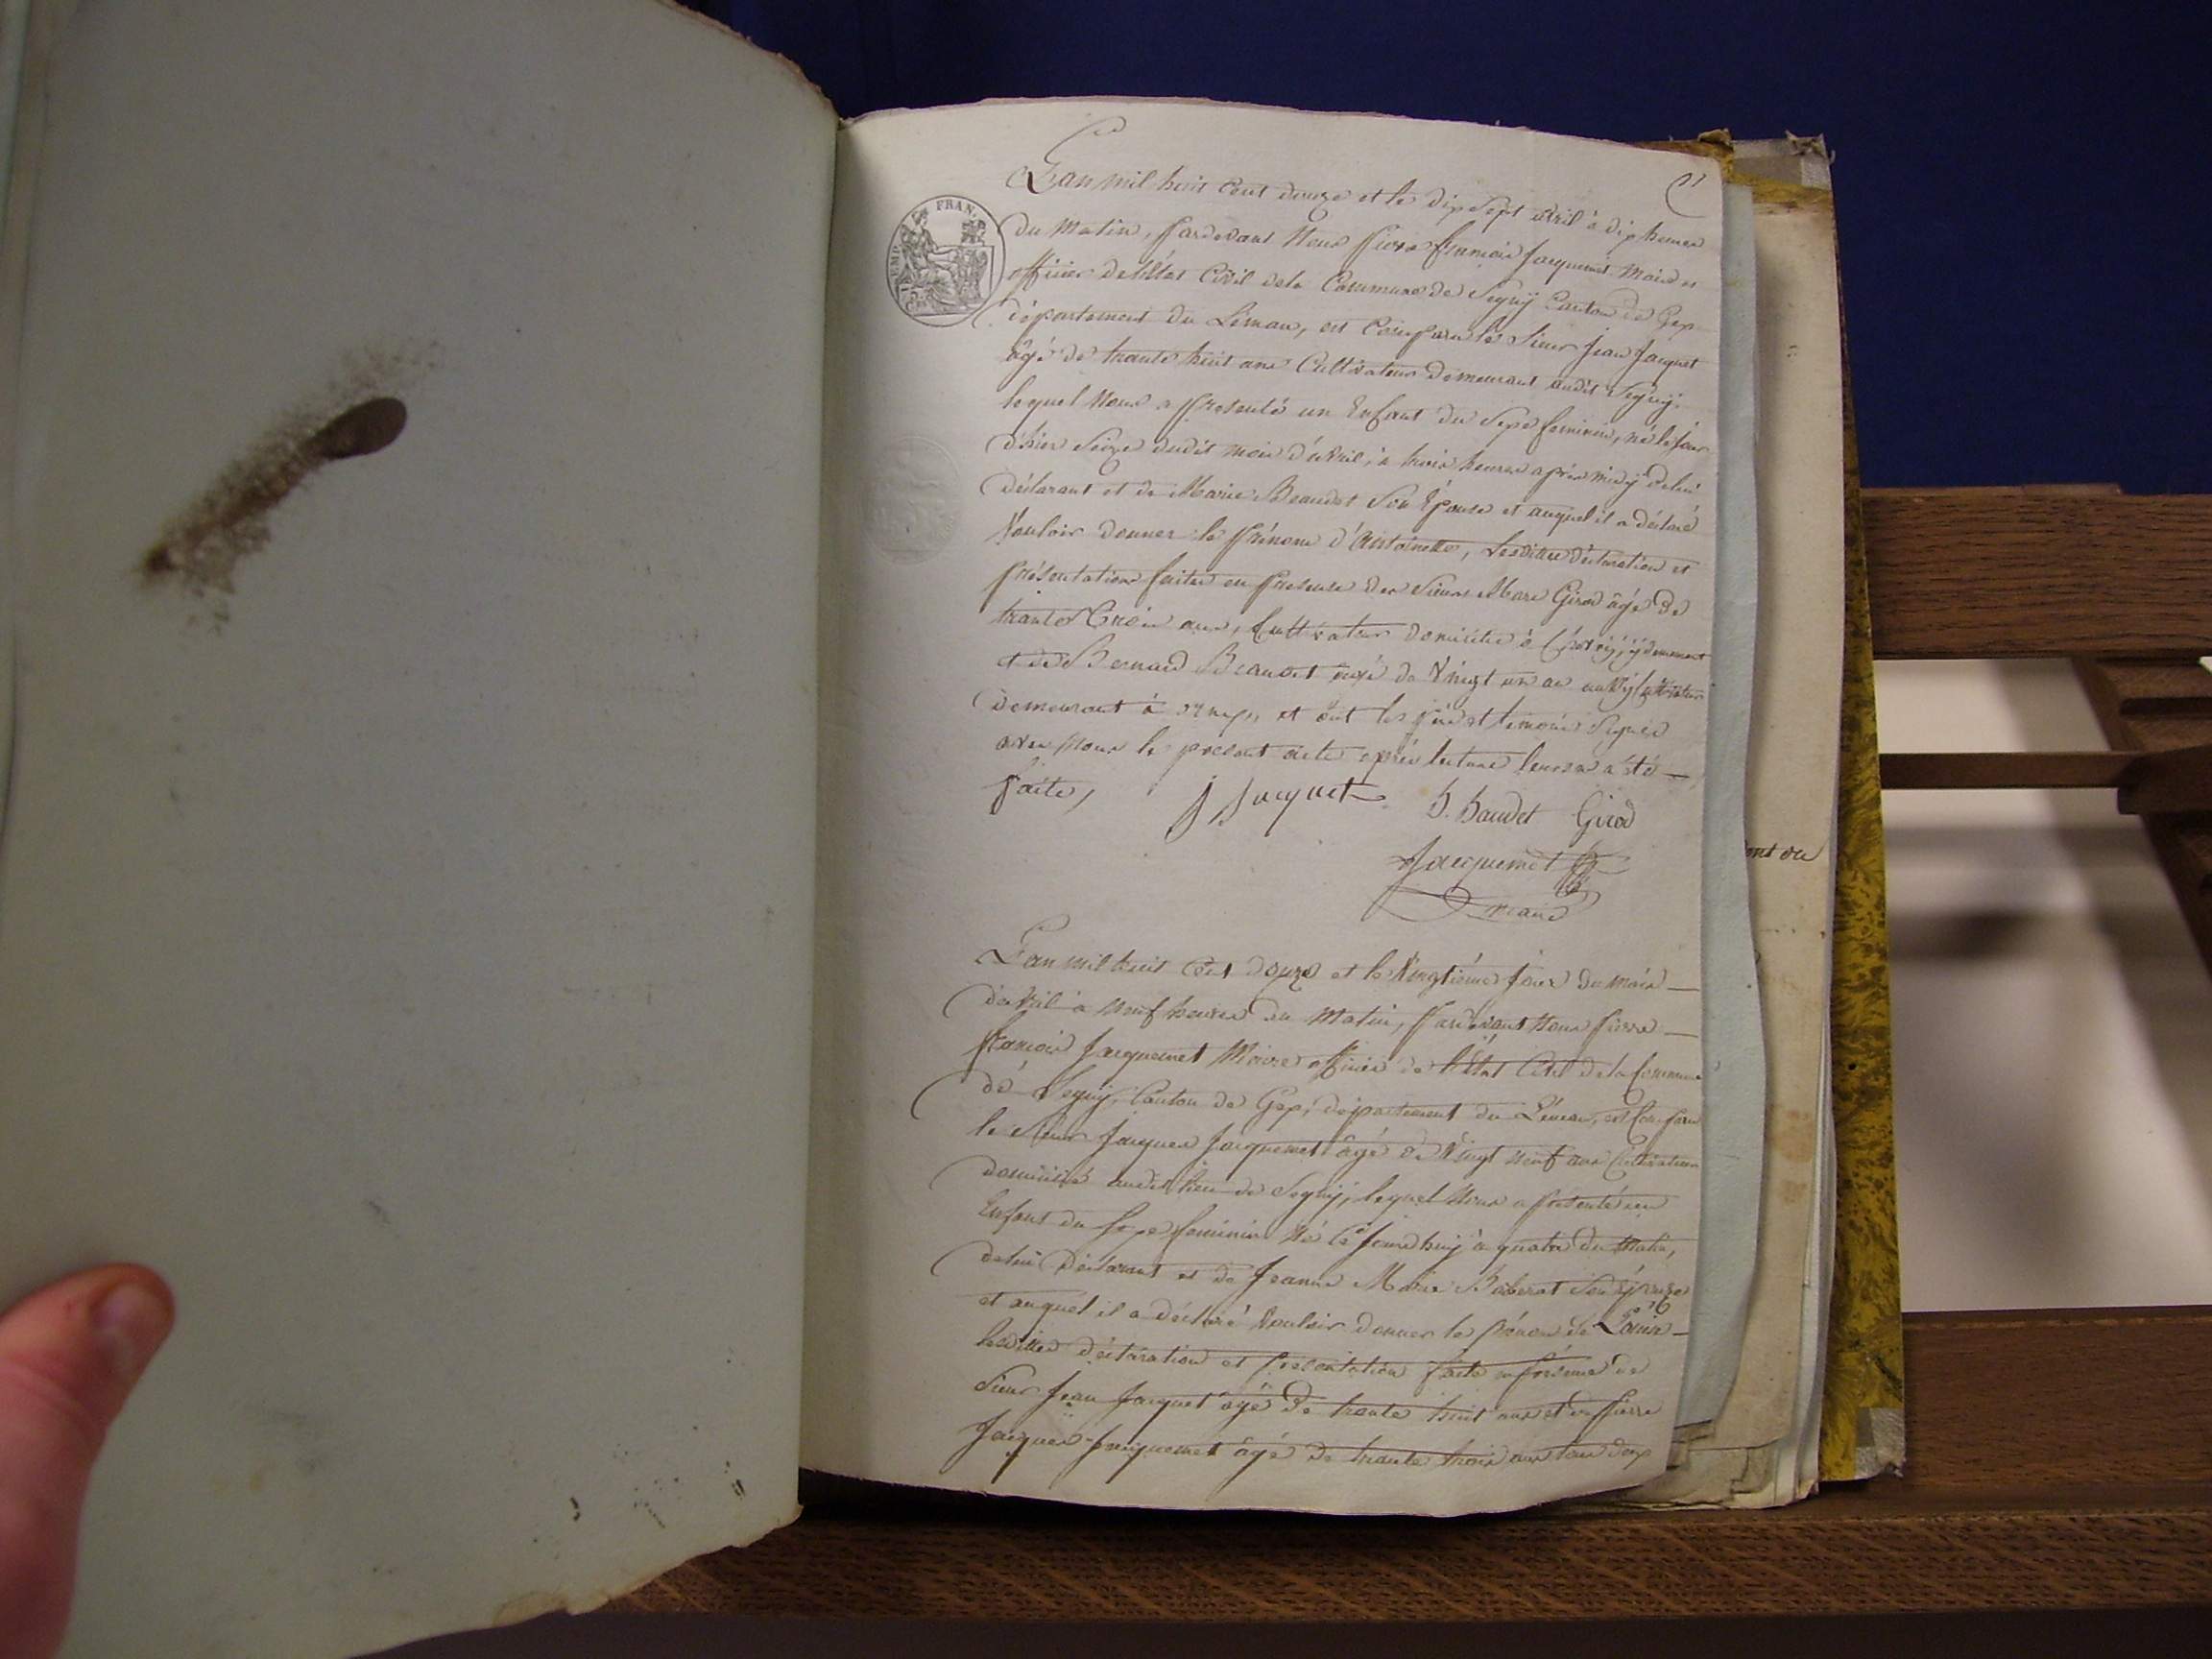 L'an mil huit Cent douze et le dix Sept avril à dix heures
du Matin, pardevant Nous pierre françois Jacquemet Maire et
officier de l'état Civil dela Commune de Segny Canton de Gex
département du Léman, est Comparu le Sieur Jean Jacquet
âgé de trante huit ans Cultivateur demeurant audit Segny
lequel Nous a presenté un Enfant du Sexe feminin, né le jour
d'hier Seize dudit mois d'avril, à trois heures après midy delui
déclarant et de Marie Beaudet Son Épouse et auquel il a déclaré
Vouloir donner le prénom d'Antoinette, Lesdittes déclaration et
présentation faites en presence des Sieurs Marc Girod âgé de
trante trois ans, Cultivateur domicilié à y demeurant
et de Bernard Beaudet âgé de Vingt un an Cultivateur
demeurant à et ont les père et temoins Signés
avec Nous le present acte après lecture leurs en a été
faite,
J Jacquet B. Baudet Girod
Jacquemet
maire
L'an mil huit Cent douze et le Vingtième jour du mois
d'avril à neuf heures du Matin, pardevant Nous pierre
françois Jacquemet Maire officier de l'État Civil dela Commune
de Segny, Canton de Gex, département du Léman, est Comparu
le Sieur Jacques Jacquemet âgé de Vingt neuf ans Cultivateur
domicilié audit lieu de Segny, lequel Nous a présenté un
Enfant du Sexe feminin Né Cejourdhuy à quatre du Matin,
delui déclarant et de Jeanne Marie Baberat Son épouse
et auquel il a déclaré Vouloir donner le prénom de Louise
lesdittes déclaration et presentation faite en présence de
Sieur Jean Jacquet âgé de trante huit ans et de pierre
Jacques Jacquemet âgé de trante trois ans tous deux
FRAN.
EMP.